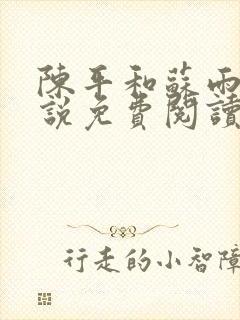 陳平和蘇雨
說免費閱讀
行走的小智障